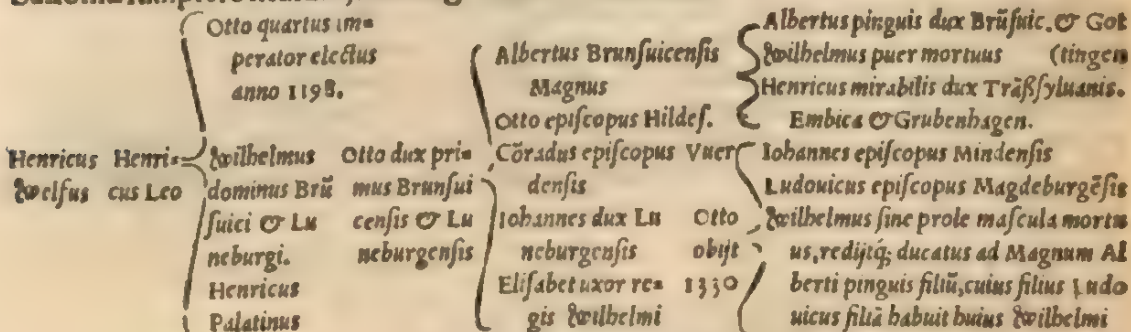 Henricus
Welfus
Henri=
cus Leo
Otto quartus im=
perator electus
anno 1198.
Wilhelmus
dominus Brū
ſuici & Lu
neburgi.
Henricus
Palatinus
Otto dux pri=
mus Brunſui
cenſis & Lu
neburgenſis
Albertus Brunſuicenſis
Magnus
Otto epiſcopus Hildeſ.
Cōradus epiſcopus Vuer
denſis
Iohannes dux Lu
neburgenſis
Eliſabet uxor re=
gis Wilhelmi
Otto
obijt
1330
Albertus pinguis dux Brūſuic. & Got
Wilhelmus puer mortuus (tingen
Henricus mirabilis dux Trāſſyluanis.
Embica & Grubenhagen.
Iohannes epiſcopus Mindenſis
Ludouicus epiſcopus Magdeburgēſis
Wilhelmus ſine prole maſcula mortu
us, redijtq; ducatus ad Magnum Al
berti pinguis filiū, cuius filius Ludo
uicus filiā habuit huius Wilhelmi